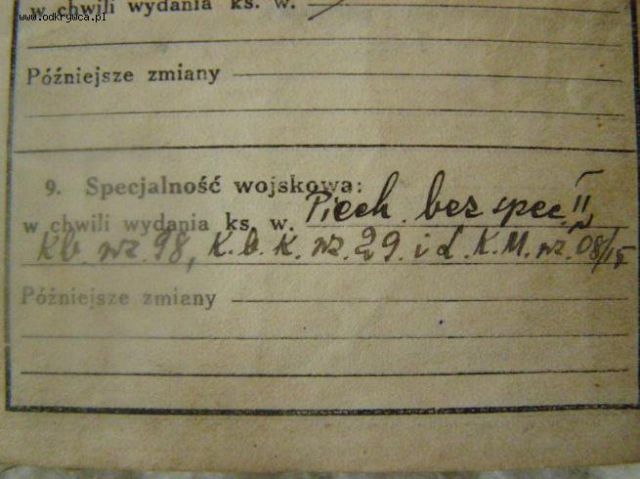 www.odkrywca.pl
w chwili wydania ks. w.
Późniejsze zmiany
9. Specjalność wojskowa:
w chwili wydania ks. w. Piech. bez spec. II
kb. wz. 98, K. b. K. wz. 29. i L. K. M. wz. 08/15
Późniejsze zmiany